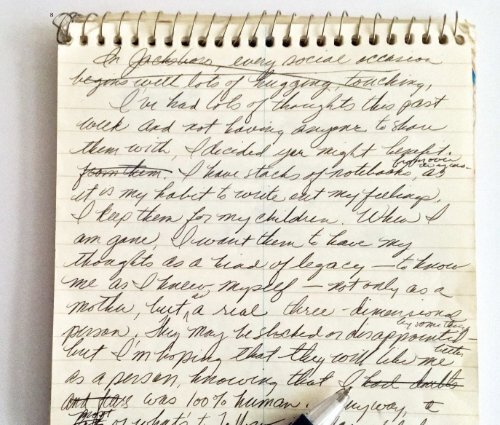 In Jacksboro, every social occasion
begins with lots of hugging, touching,
I've had lots of thoughts this past
week and not having anyone to share
them with, I decided you might benefit
from them. I have stacks of notebooks, as
from over
it is my habit to write out my feelings.
I keep them for my children. When I
am gone, I want them to have my
thoughts as a kind of legacy — to know
me as I knew myself — not only as a
mother, but a real three-dimensional
person. They may be shocked or disappointed
by some things
but I'm hoping that they will like me
as a person, knowing that I had doubts
and fears was 100% human. Anyway,
or what's